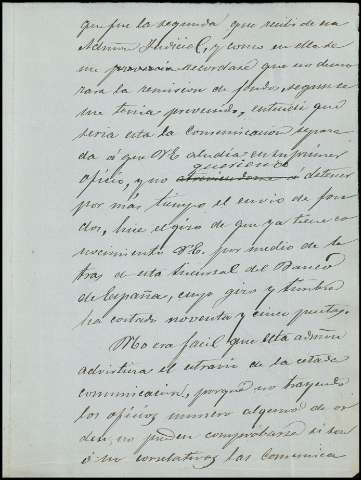 que fue la segunda que recibi de esa
Admon Judicial, y como en ella se
me recordase que no demo
rara la remision de fondos, segun se
me tenia prevenido, entendi que
seria esta la comunicacion separa
da á que VE aludia en su primer
queriendo
oficio, y no atreviendome á detener
por más tiempo el envio de fon
dos, hice el giro de que ya tiene co
nocimiento V.E. por medio de le
tras de esta Sucursal del Banco
de España, cuyo giro y timbre
ha costado noventa y cinco pesetas.
No era facil que esta admón
advirtiera el extravio de la citada
comunicación, porque no trayendo
los oficios numero alguno de or
den, no pueden comprobarse si son
ó no correlativas las comunica